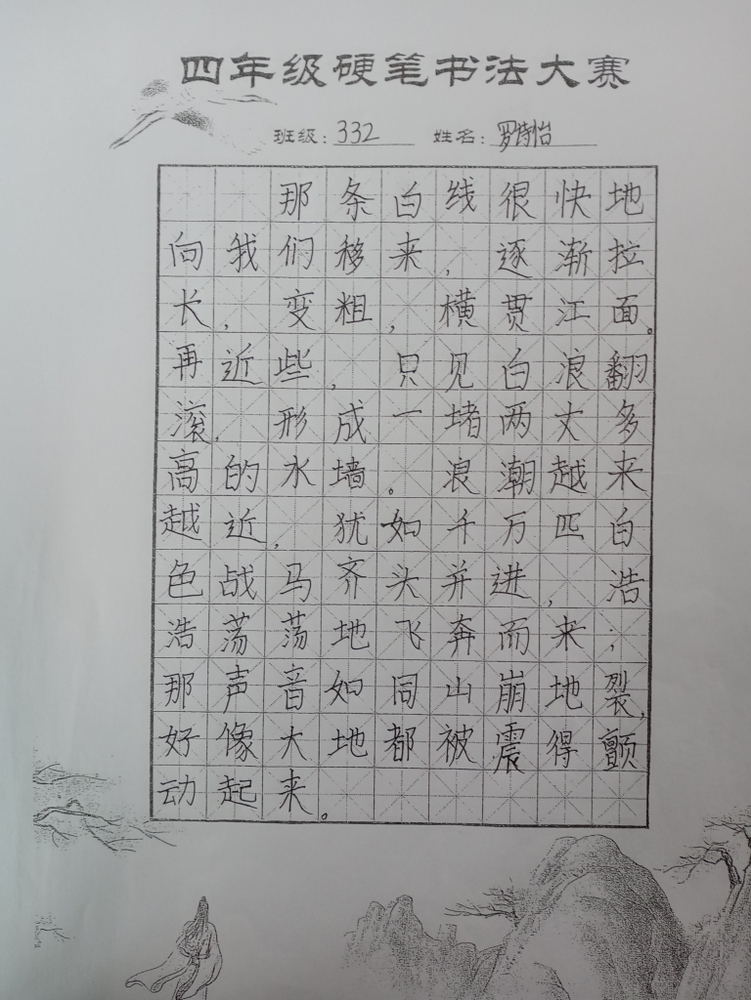 四年级硬笔书法大赛
班级：332 姓名：罗诗怡
那条白线很快地
向我们移来，逐渐拉
长，变粗，横贯江面。
再近些，只见白浪翻
滚，形成一堵两丈多
高的水墙。浪潮越来
越近，犹如千万匹白
色战马齐头并进，浩
浩荡荡地飞奔而来；
那声音如同山崩地裂，
好像大地都被震得颤
动起来。